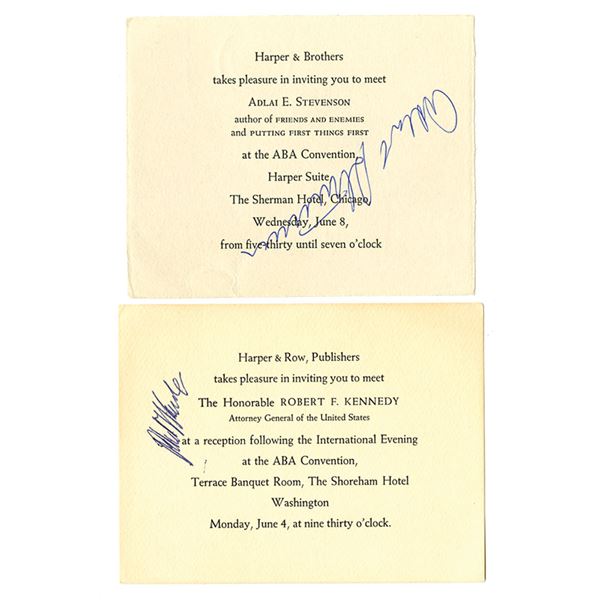 Harper & Brothers
takes pleasure in inviting you to meet
ADLAI E. STEVENSON
author of FRIENDS AND ENEMIES
and PUTTING FIRST THINGS FIRST
at the ABA Convention,
Harper Suite,
The Sherman Hotel, Chicago,
Wednesday, June 8,
from five-thirty until seven o'clock
Harper & Row, Publishers
takes pleasure in inviting you to meet
The Honorable ROBERT F. KENNEDY
Attorney General of the United States
at a reception following the International Evening
at the ABA Convention,
Terrace Banquet Room, The Shoreham Hotel
Washington
Monday, June 4, at nine thirty o'clock.